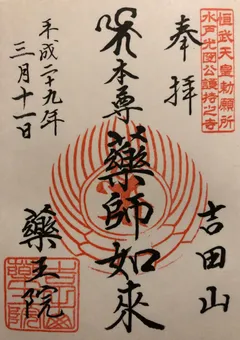 桓武天皇勅願所
水戸光圀公護持之寺
奉拝
吉田山
本尊薬師如来
薬王院
平成二十九年
三月十一日